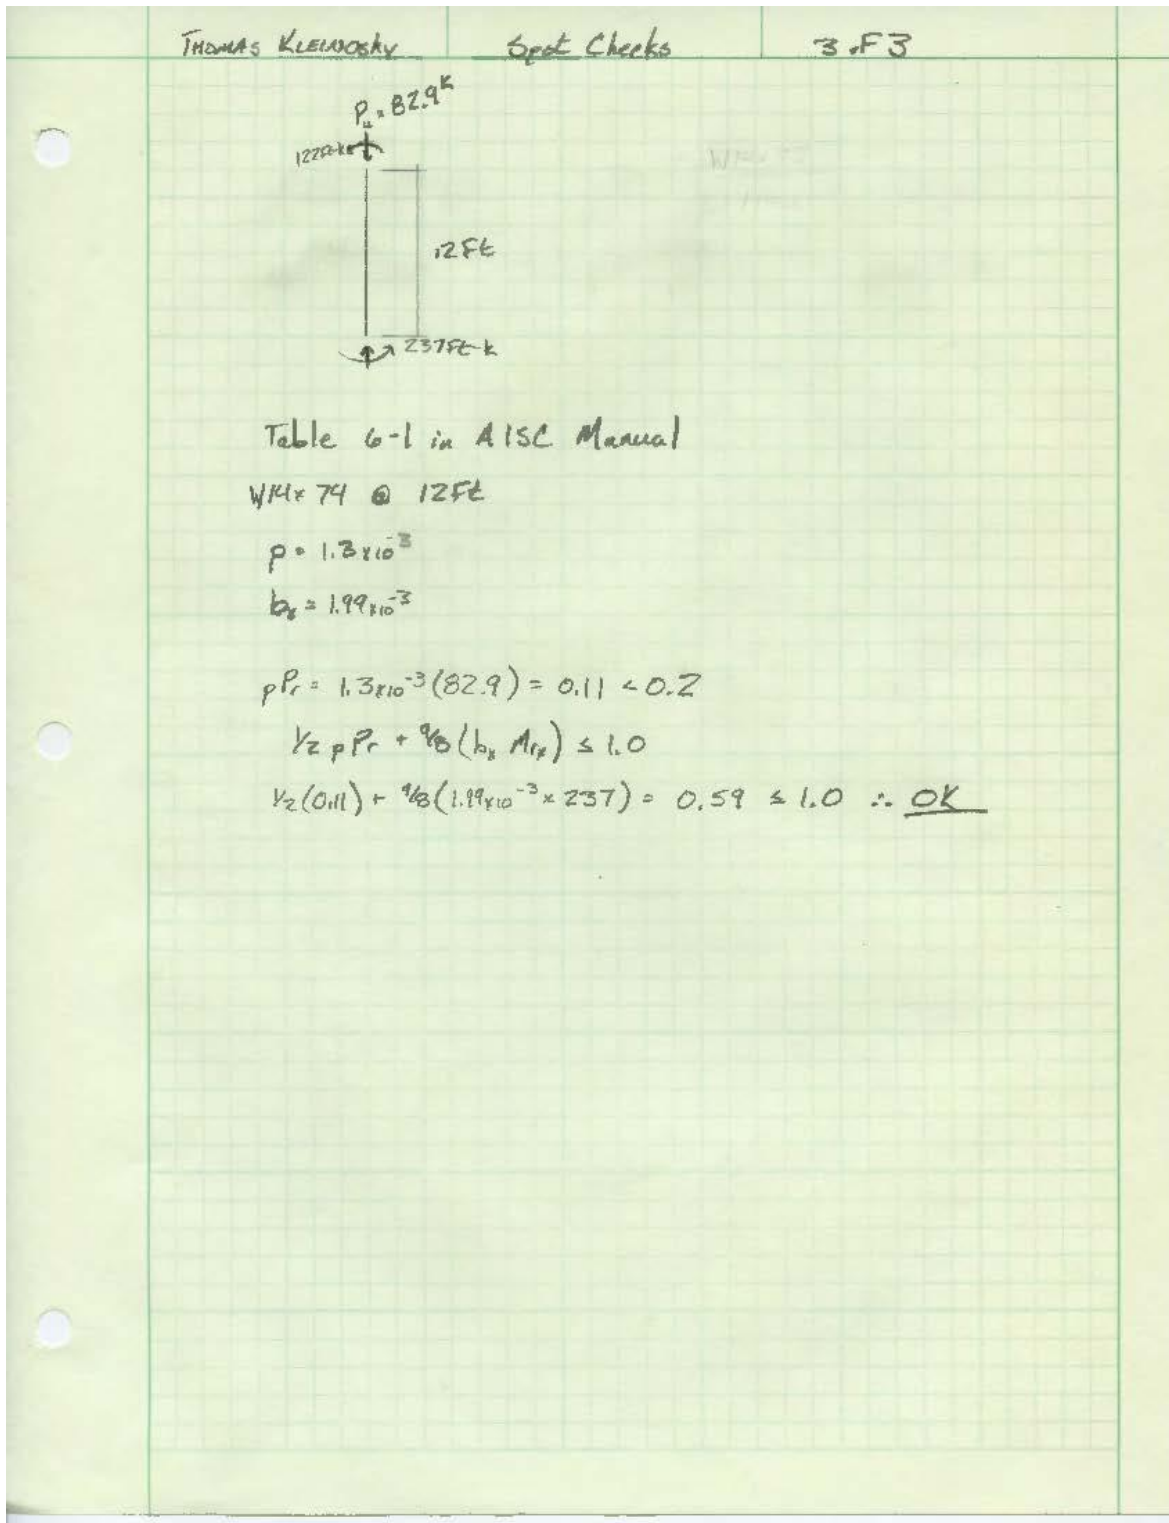 THOMAS KLEINOSKY Spot Checks 3 of 3
Pu = 82.9k
122ft-k
12ft
237ft-k
Table 6-1 in AISC Manual
W14x 74 @ 12ft
p = 1.3x10-3
bx = 1.99x10-3
pPr = 1.3x10-3(82.9) = 0.11 < 0.2
1/2 pPr + 9/8(bx Mrx) ≤ 1.0
1/2(0.11) + 9/8(1.99x10-3 x 237) = 0.59 ≤ 1.0 ∴ OK